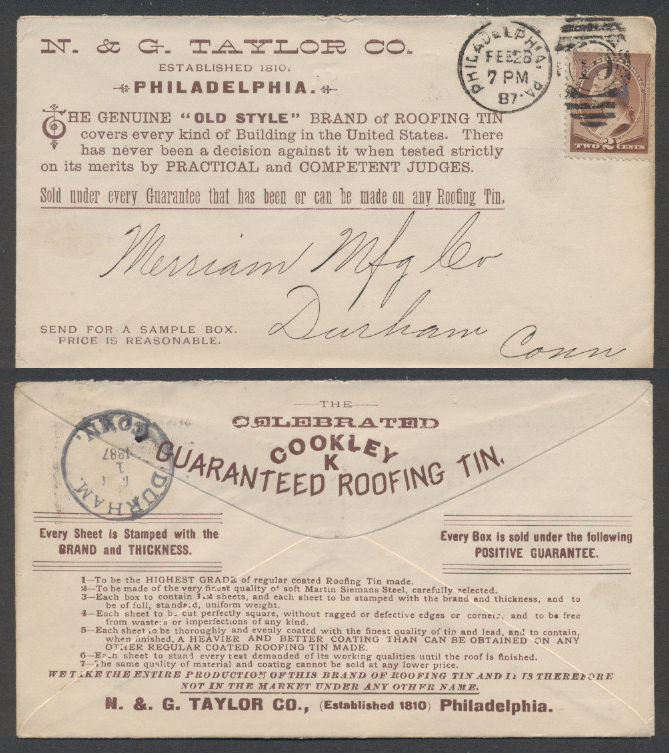 N. & G. TAYLOR CO.
ESTABLISHED 1810.
PHILADELPHIA.
THE GENUINE "OLD STYLE" BRAND of ROOFING TIN
covers every kind of Building in the United States. There
has never been a decision against it when tested strictly
on its merits by PRACTICAL and COMPETENT JUDGES.
Sold under every Guarantee that has been or can be made on any Roofing Tin.
PHILADELPHIA, PA.
FEB 28
7 PM
87.
TWO 2 CENTS
Merriam Mfg Co
Durham
Conn
SEND FOR A SAMPLE BOX.
PRICE IS REASONABLE.
THE
CELEBRATED
COOKLEY
K
GUARANTEED ROOFING TIN.
DURHAM. CONN.
1
1887
Every Sheet is Stamped with the
BRAND and THICKNESS.
Every Box is sold under the following
POSITIVE GUARANTEE.
1—To be the HIGHEST GRADE of regular coated Roofing Tin made.
2—To be made of the very finest quality of soft Martin Siemans Steel, carefully selected.
3—Each box to contain 112 sheets, and each sheet to be stamped with the brand and thickness, and to
be of full, standard, uniform weight.
4—Each sheet to be cut perfectly square, without ragged or defective edges or corners, and to be free
from wasters or imperfections of any kind.
5—Each sheet to be thoroughly and evenly coated with the finest quality of tin and lead, and to contain,
when finished, A HEAVIER AND BETTER COATING THAN CAN BE OBTAINED ON ANY
OTHER REGULAR COATED ROOFING TIN MADE.
6—Each sheet to stand every test demanded of its working qualities until the roof is finished.
7—The same quality of material and coating cannot be sold at any lower price.
WE TAKE THE ENTIRE PRODUCTION OF THIS BRAND OF ROOFING TIN AND IT IS THEREFORE
NOT IN THE MARKET UNDER ANY OTHER NAME.
N. & G. TAYLOR CO., (Established 1810) Philadelphia.